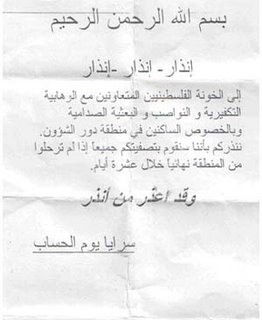 بسم الله الرحمن الرحيم
إنذار - إنذار - إنذار
الى الخونة الفلسطينيين المتعاونين مع الوهابية
التكفيرية و النواصب و البعثية الصدامية
وبالخصوص الساكنين في منطقة دور الشؤون.
ننذركم بأننا سنقوم بتصفيتكم جميعاً إذا لم ترحلوا
من المنطقة نهائياً خلال عشرة أيام.
وقد اعذر من أنذر
سرايا يوم الحساب